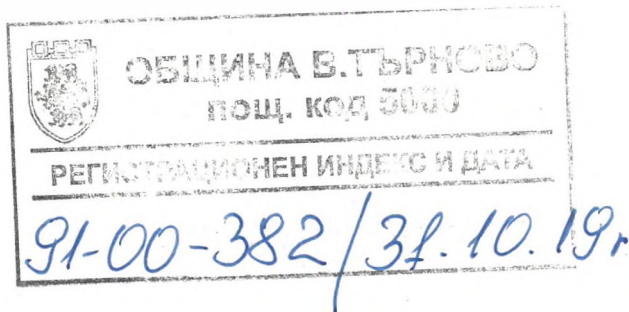 ОБЩИНА В.ТЪРНОВО
ПОЩ. КОД 5000
РЕГИСТРАЦИОНЕН ИНДЕКС И ДАТА
91-00-382/31.10.19г